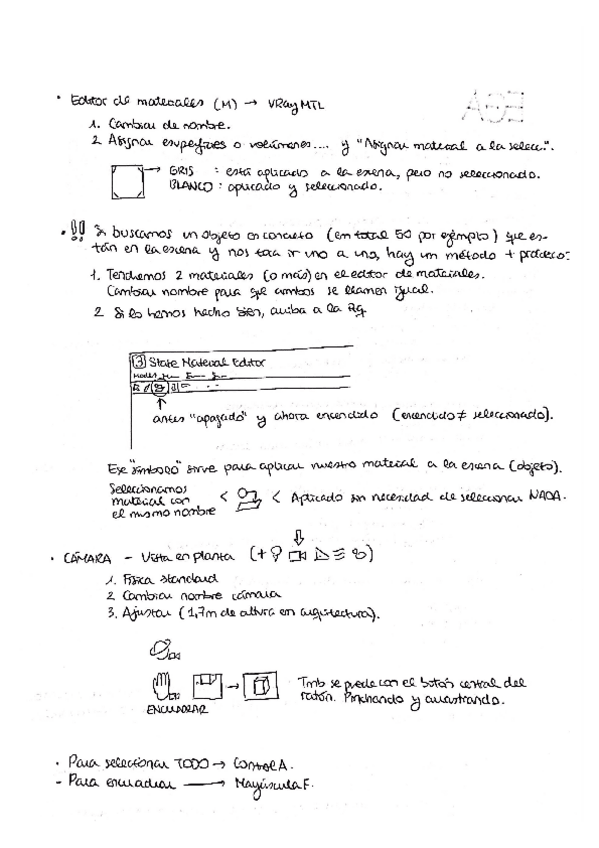 EGA
· Editor de materiales (M) → VRayMTL
1. Cambiar de nombre.
2 Asignar superfícies o volúmenes.... y "Asignar material a la selecc.".
→ GRIS : está aplicado a la escena, pero no seleccionado.
BLANCO : aplicado y seleccionado.
· !! Si buscamos un objeto en concreto (en total 50 por ejemplo) que es-
tán en la escena y nos toca ir uno a uno, hay un método + práctico:
1. Tendremos 2 materiales (o más) en el editor de materiales.
Cambiar nombre para que ambos se llamen igual.
2 Si lo hemos hecho bien, arriba a la
3 State Material Editor
Modes
antes "apagado" y ahora encendido (encendido ≠ seleccionado).
Ese "símbolo" sirve para aplicar nuestro material a la escena (objeto).
Seleccionamos
material con
el mismo nombre
< < Aplicado sin necesidad de seleccionar NADA.
· CÁMARA - Vista en planta (+
1. Física standard
2 Cambiar nombre cámara
3. Ajustar (1,7m de altura en arquitectura).
ENCUADRAR
Tmb se puede con el botón central del
ratón. Pinchando y arrastrando.
· Para seleccionar TODO → Control A.
- Para encuadrar → Mayúscula F.